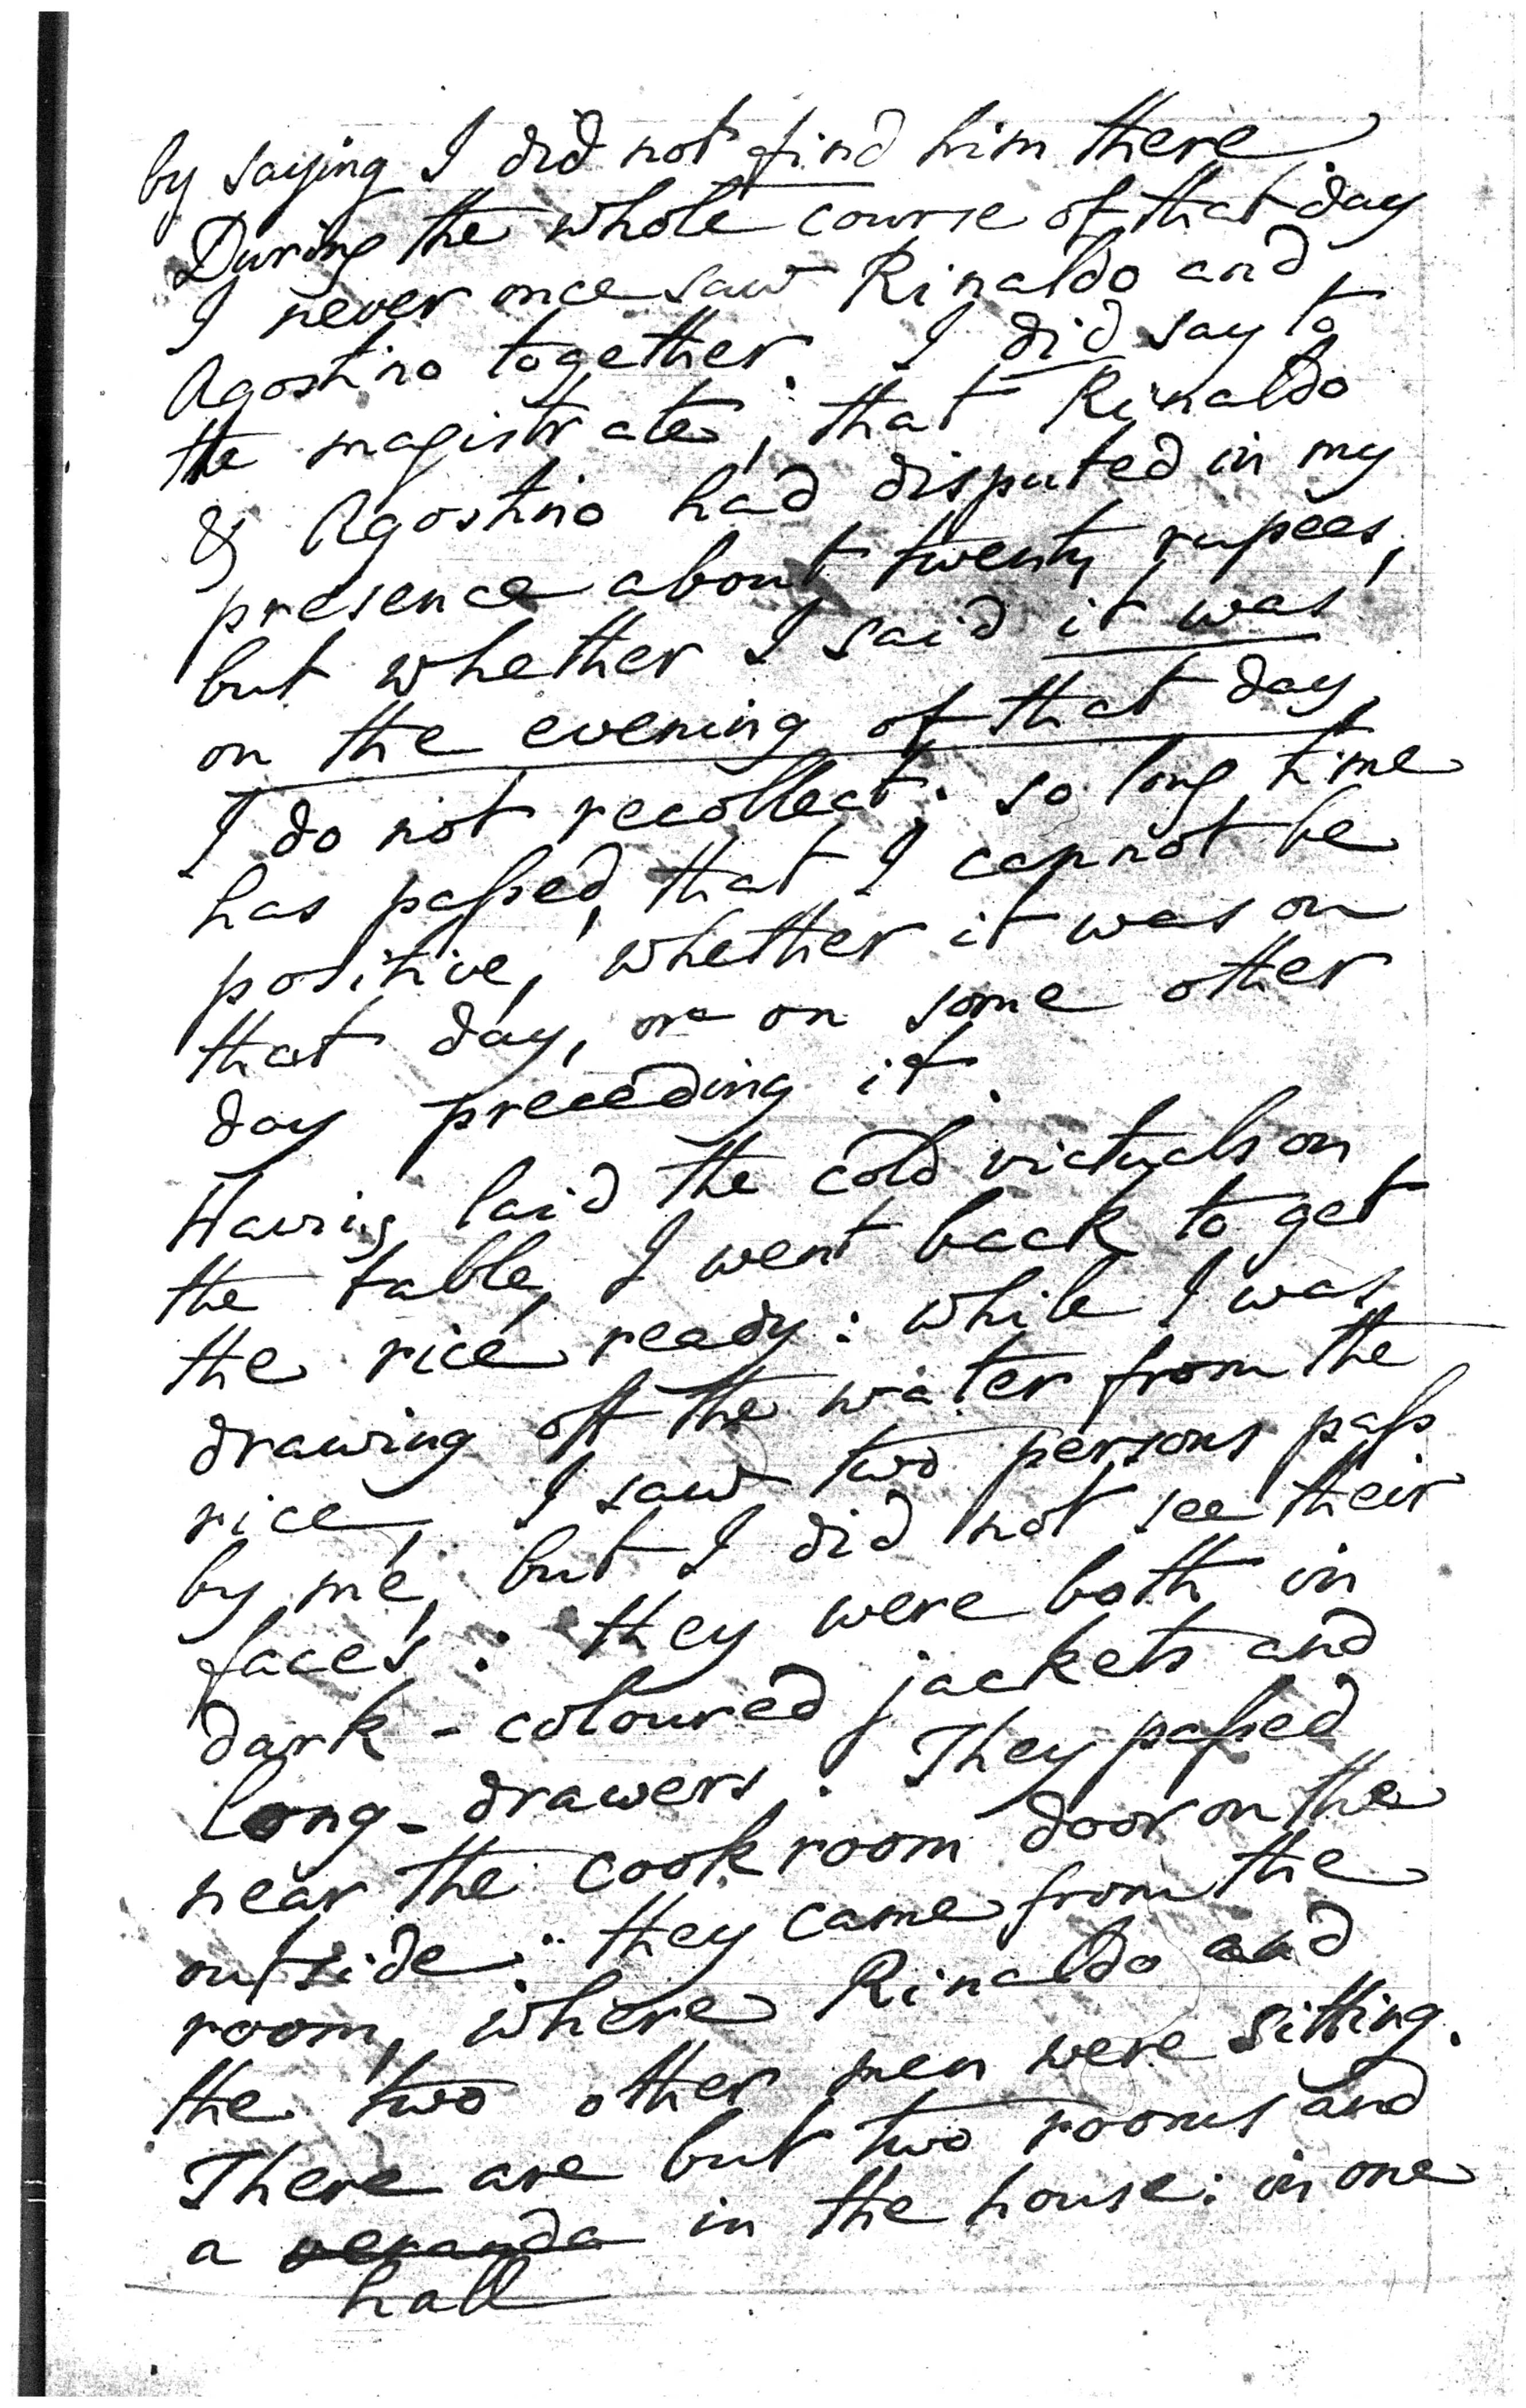 by saying I did not find him there.
During the whole course of that day
I never once saw Rinaldo and
Agostino together. I did say to
the magistrate, that Rinaldo
& Agostino had disputed in my
presence about twenty rupees,
but whether I said it was
on the evening of that day,
I do not recollect: so long time
has paſsed, that I cannot be
positive, whether it was on
that day, or on some other
day preceding it.
Having laid the cold victuals on
the table, I went back to get
the rice ready: while I was
drawing off the water from the
rice, I saw two persons paſs
by me, but I did not see their
faces: they were both in
dark-coloured jackets and
long-drawers. They paſsed
near the cookroom door on the
outside: they came from the
room, where Rinaldo and
the two other men were sitting.
There are but two rooms and
a veranda in the house: in one
hall